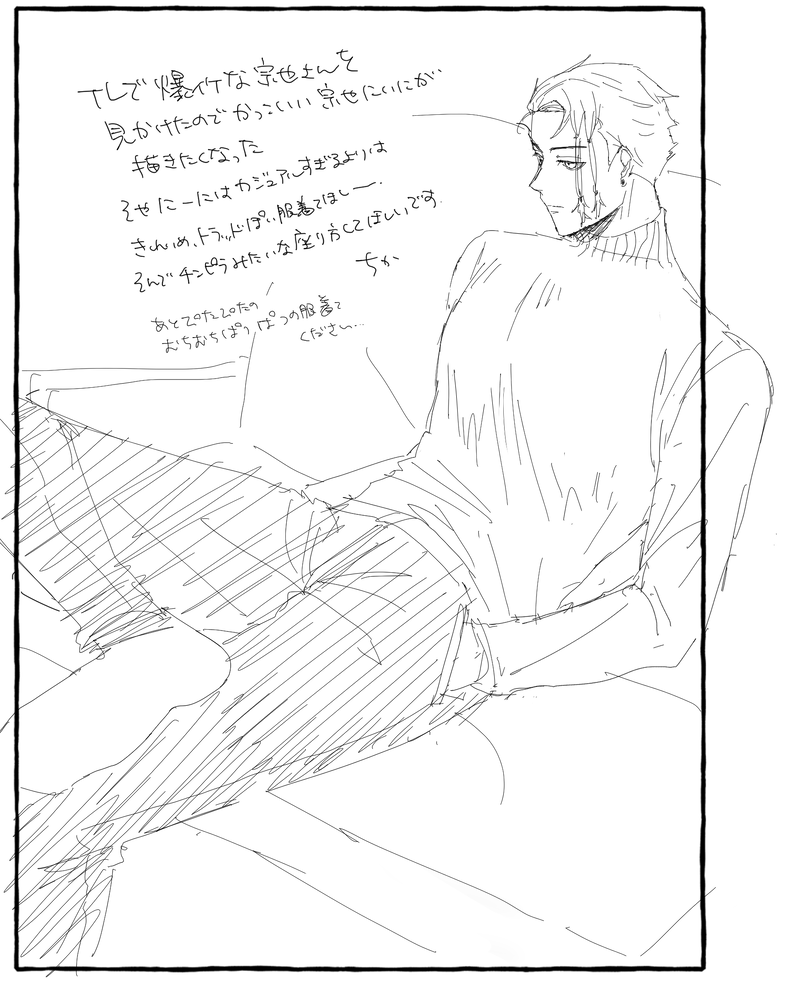 TLで爆イケな宗也さんを
見かけたのでかっこいい宗也にいにが
描きたくなった
そやにーにはカジュアルすぎるよりは
きれいめ、トラッドぽい服着てほしー。
そんでチンピラみたいな座り方してほしいです。
ちか
あとぴたぴたの
むちむちぱつぱつの服着て
ください…